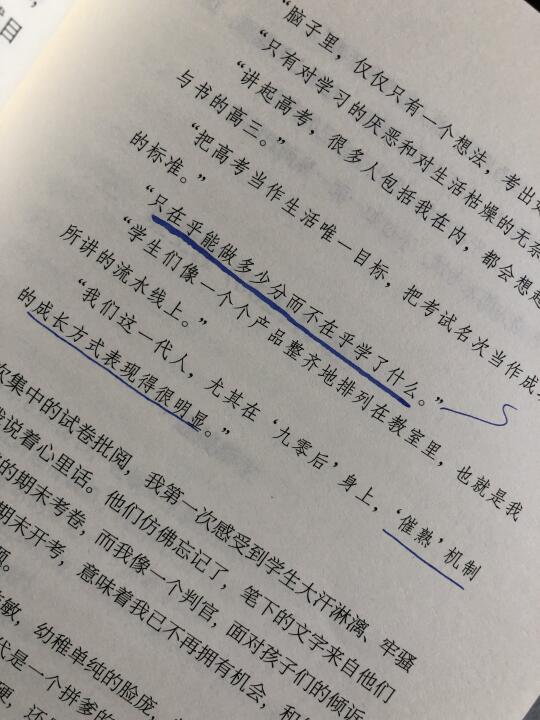 目
“脑子里，仅仅只有一个想法，考出好
“只有对学习的厌恶和对生活枯燥的无奈
“讲起高考，很多人包括我在内，都会想起
与书的高三。”
“把高考当作生活唯一目标，把考试名次当作成
的标准。”
“只在乎能做多少分而不在乎学了什么。”
“学生们像一个个产品整齐地排列在教室里，也就是我
所讲的流水线上。”
“我们这一代人，尤其在‘九零后’身上，‘催熟’机制
的成长方式表现得很明显。”
次集中的试卷批阅，我第一次感受到学生大汗淋漓、牢骚
说着心里话。他们仿佛忘记了，笔下的文字来自他们
的期末考卷，而我像一个判官，面对孩子们的倾诉
期末开考，意味着我已不再拥有机会，和
敏，幼稚单纯的脸庞、
代是一个拼爹的